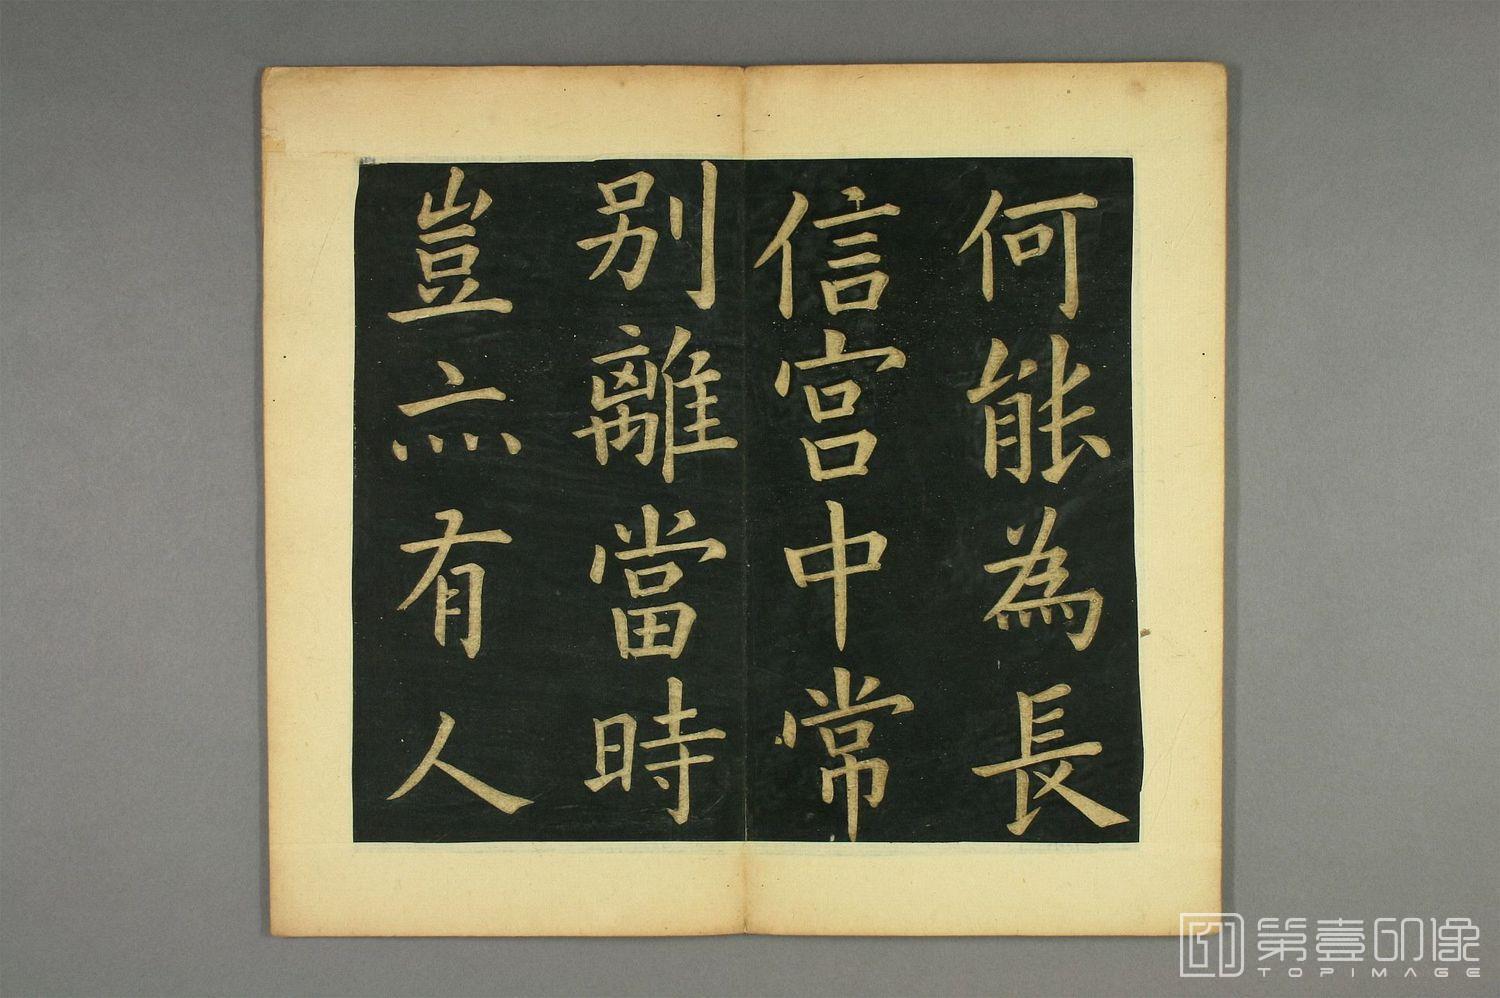 何能為長
信宮中常
別離當時
豈亦有人
第壹印像
TOPIMAGE